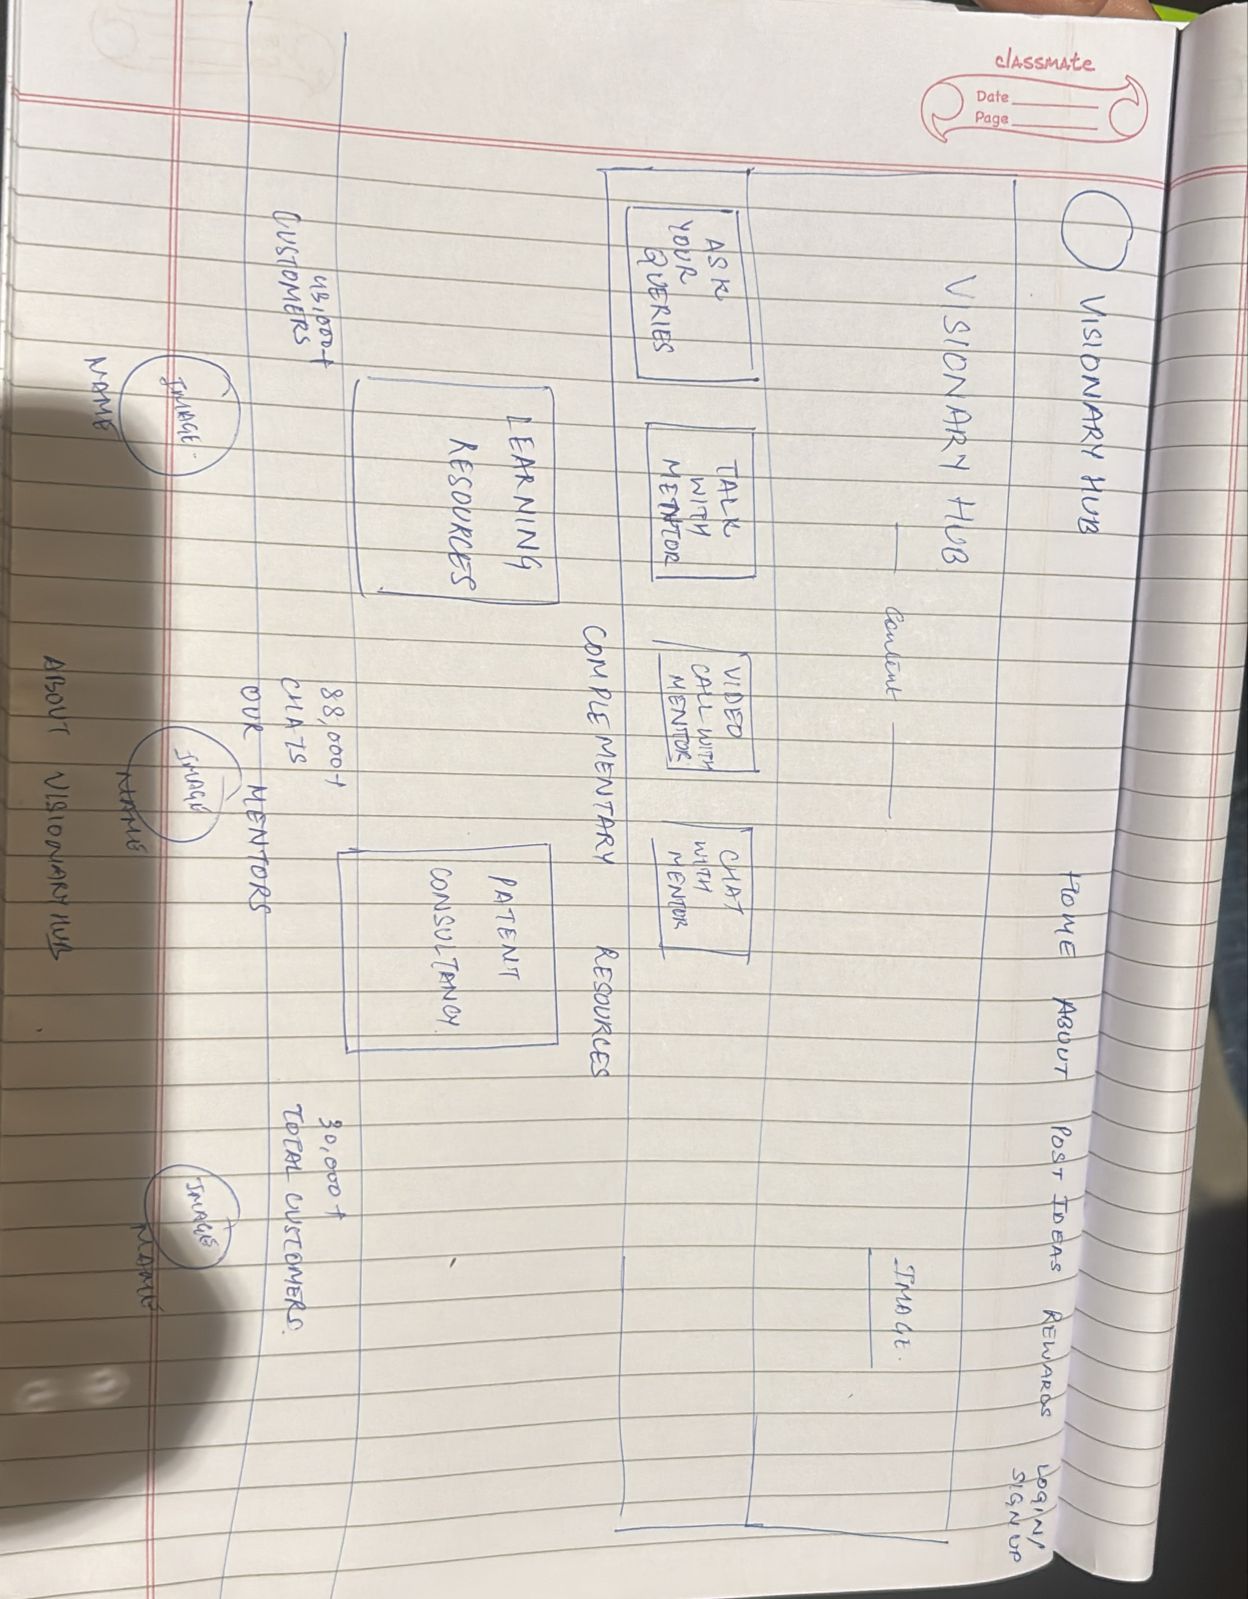 classmate
Date
Page
VISIONARY HUB
HOME
ABOUT
POST IDEAS
REWARDS
LOGIN/
SIGN UP
VISIONARY HUB
Content
IMAGE.
ASK
YOUR
QUERIES
TALK
WITH
VIDEO
CALL WITH
MENTOR
CHAT
WITH
MENTOR
COMPLEMENTARY RESOURCES
LEARNING
RESOURCES
PATENT
CONSULTANCY.
CUSTOMERS
88,000+
CHATS
30,000+
TOTAL CUSTOMERS.
OUR MENTORS
IMAGE.
NAME
IMAGE
NAME
IMAGE
NAME
ABOUT VISIONARY HUB